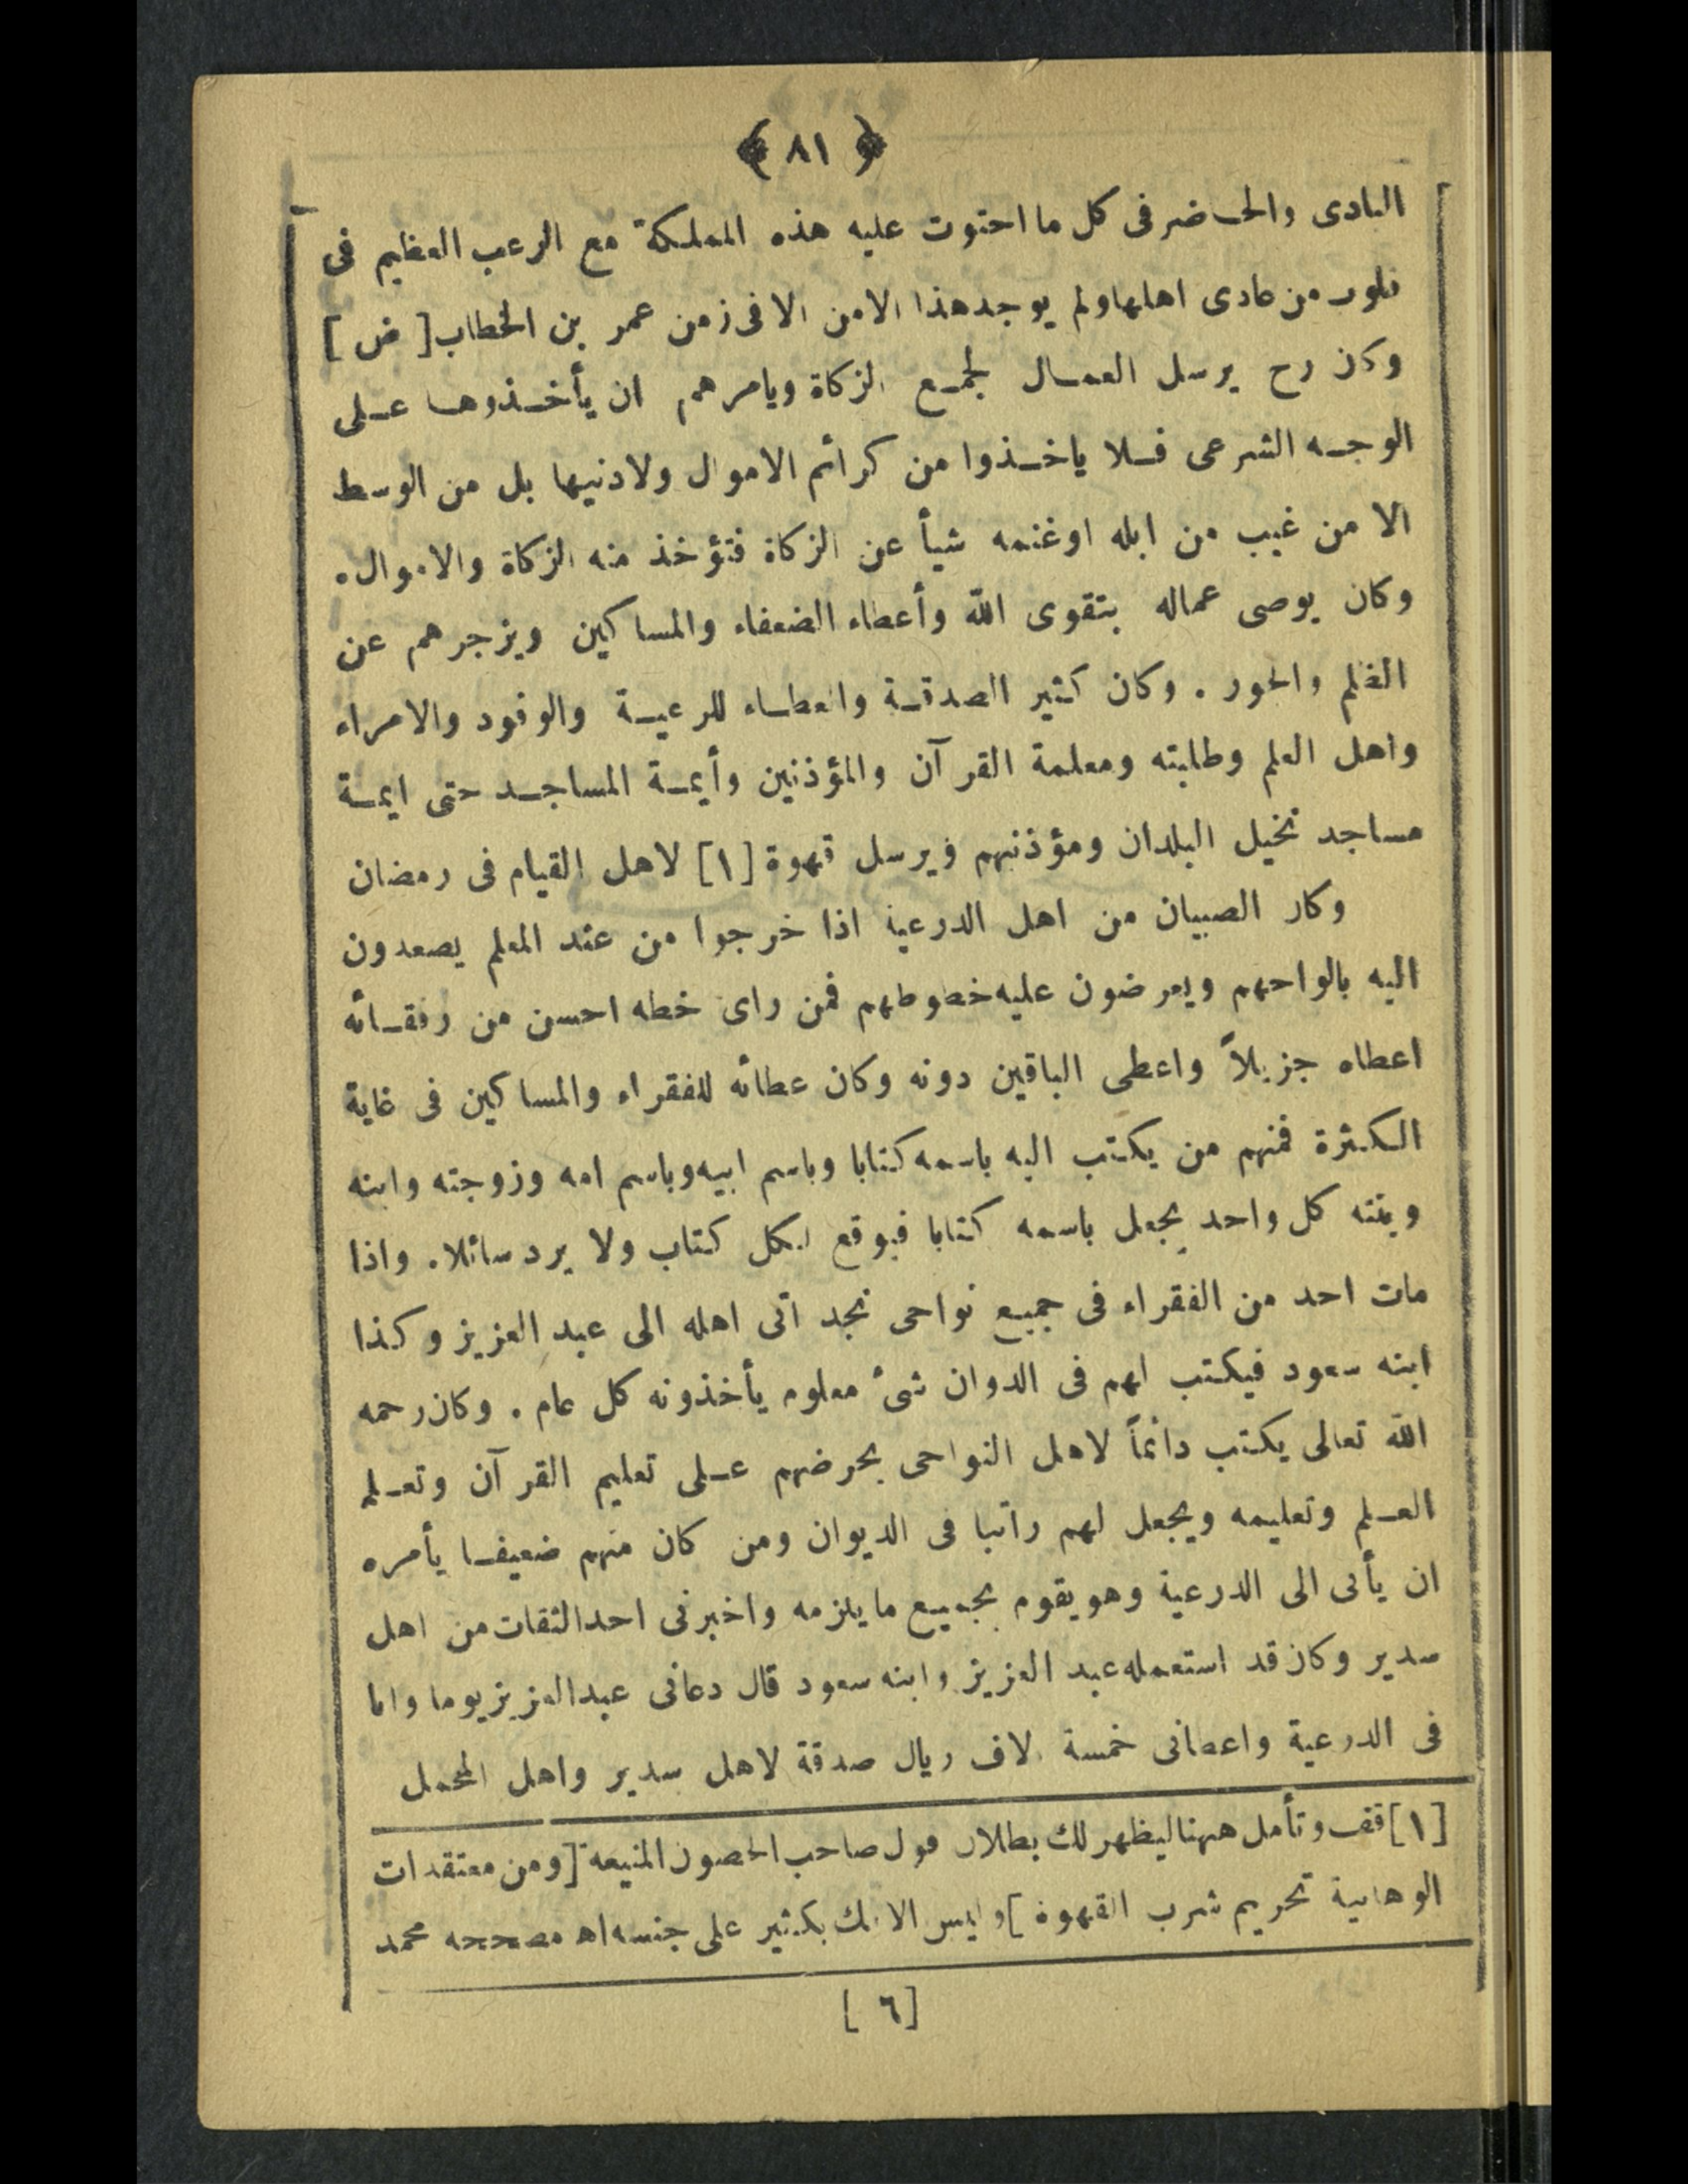 ﴿ ٨١ ﴾
البادى والحاضر فى كل ما احتوت عليه هذه المملكة مع الرعب العظيم فى
قلوب من عادى اهلها ولم يوجد هذا الامن الا فى زمن عمر بن الخطاب [ ض ]
وكان رح يرسل العمال لجمع الزكاة ويامرهم ان يأخذوها على
الوجه الشرعى فلا ياخذوا من كرائم الاموال ولادنيها بل من الوسط
الا من غيب من ابله اوغنمه شيأ عن الزكاة فتؤخذ منه الزكاة والاموال.
وكان يوصى عماله بتقوى الله وأعطاء الضعفاء والمساكين ويزجرهم عن
الظلم والجور . وكان كثير الصدقة والعطاء للرعية والوفود والامراء
واهل العلم وطلبته ومعلمة القرآن والمؤذنين وأيمة المساجد حتى ايمة
مساجد نخيل البلدان ومؤذنيهم ويرسل قهوة [١] لاهل القيام فى رمضان
وكان الصبيان من اهل الدرعية اذا خرجوا من عند المعلم يصعدون
اليه بالواحهم ويعرضون عليه خطوطهم فمن راى خطه احسن من رفقائه
اعطاه جزيلاً واعطى الباقين دونه وكان عطائه للفقراء والمساكين فى غاية
الكثرة فمنهم من يكتب اليه باسمه كتابا وباسم ابيه وباسم امه وزوجته وابنه
وبنته كل واحد يجعل باسمه كتابا فيوقع لكل كتاب ولا يرد سائلا. واذا
مات احد من الفقراء فى جميع نواحى نجد اتى اهله الى عبد العزيز وكذا
ابنه سعود فيكتب لهم فى الدوان شىء معلوم يأخذونه كل عام . وكان رحمه
الله تعالى يكتب دائماً لاهل النواحى بحرضهم على تعليم القرآن وتعلم
العلم وتعليمه ويجعل لهم راتبا فى الديوان ومن كان منهم ضعيفا يأمره
ان يأتى الى الدرعية وهو يقوم بجميع ما يلزمه واخبرنى احد الثقات من اهل
سدير وكان قد استعمله عبد العزيز وابنه سعود قال دعانى عبد العزيز يوما وانا
فى الدرعية واعطانى خمسة الاف ريال صدقة لاهل سدير واهل المحمل
[١] قف وتأمل ههنا ليظهر لك بطلان قول صاحب الحصون المنيعة [ ومن معتقدات
الوهابية تحريم شرب القهوة ] وليس الافك بكثير على جنسه اه مصححه محمد
[ ٦ ]